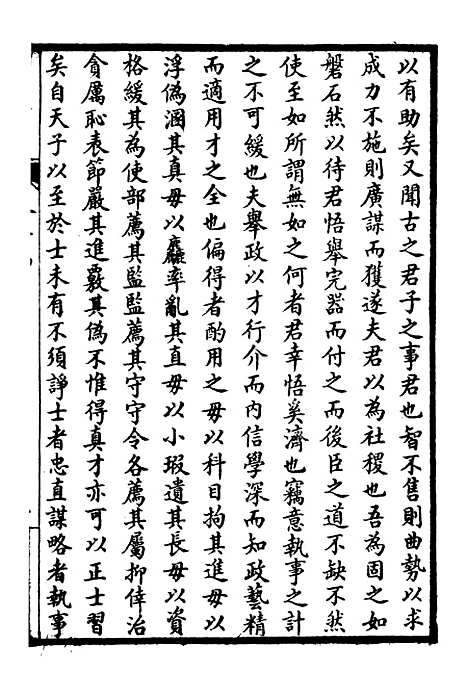 以有助矣又聞古之君子之事君也智不售則曲勢以求
成力不施則廣謀而獲遂夫君以為社稷也吾為固之如
磐石然以待君悟舉完器而付之而後臣之道不缺不然
使至如所謂無如之何者君幸悟奚濟也竊意執事之計
之不可緩也夫舉政以才行介而內信學深而知政藝精
而適用才之全也偏得者酌用之毋以科目拘其進毋以
浮偽溷其真毋以麤率亂其直毋以小瑕遺其長毋以資
格緩其為使部薦其監監薦其守守令各薦其屬抑倖治
貪厲恥表節嚴其進覈其偽不惟得真才亦可以正士習
矣自天子以至於士未有不須諍士者忠直謀略者執事